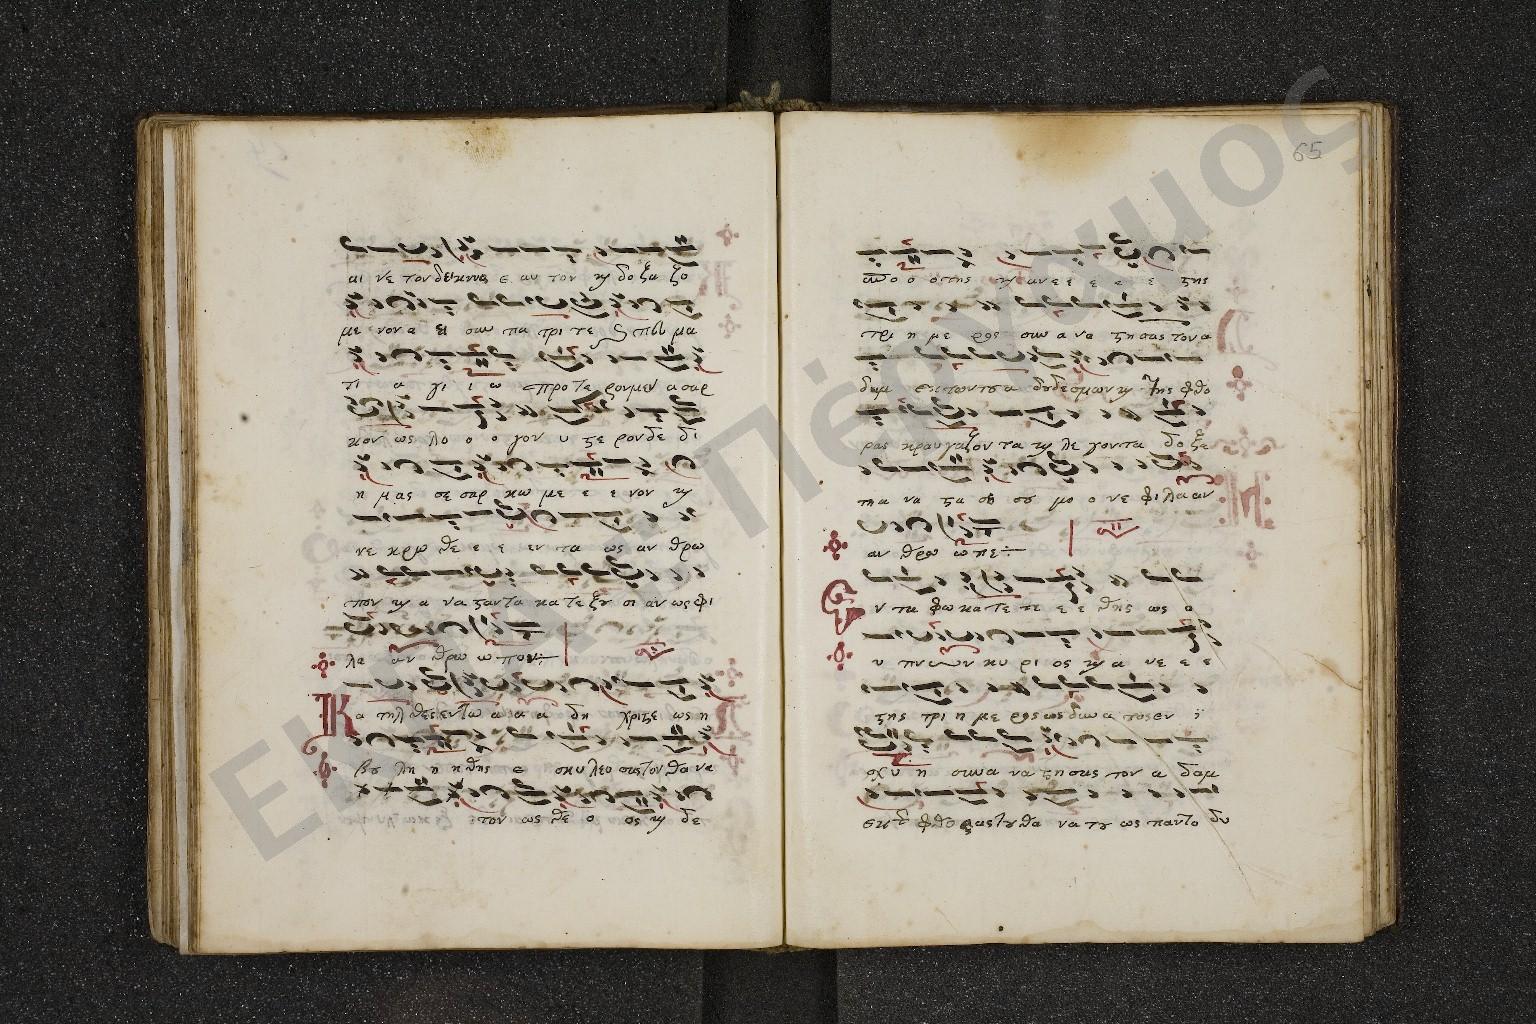 αι νε τον δεικνυς ε αυ τον κ δο ξα ζο
με νον α ει συν πα τρι τε κ πνυ μα
τι α γι ι ω προ τε ρον μεν α σαρ
κον ως λο ο ο γον υ στε ρον δε δι
η μας σε σαρ κω με ε ε νον κ
νε κρω θε ε ε εν τα ως αν θρω
πον κ α να σταν τα κα τε ξου σι αν ως φι
λα αν θρω ω πον
Κα τηλ θες εν τω α α α δη χριστε ως η
βου λη η η θης ε σκυ λευ σας τον θα να
τον ως θε ο ος κ δε
65
ο ο της κ αν ε ε ε ε ε στης
τρι η με ρος συν α να στη σας τον α
δαμ εκ των του α δου δε σμων κ της φθο
ρας κραυ γα ζον τα κ λε γον τα δο ξα
τη α να στα σει σου μο ο νε φι λα αν
αν θρω ω πε
Εν τα φω κα τε τε ε ε θης ως ο
υ πνων κυ ρι ος κ α νε ε ε
στης τρι η με ρος ως δυ να τος εν ι
σχυ η συν α να στη σας τον α δαμ
εκ της φθο ρας του θα να του ως παν το δυ
ΕΚΕΒΙ Πέργαμος